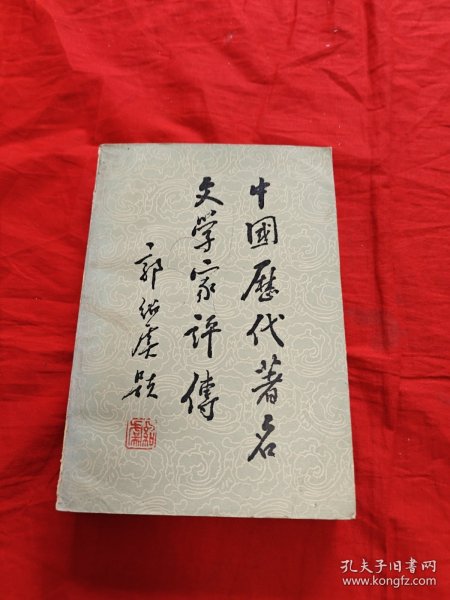 中國歷代著名
文学家评傳
郭绍虞题
绍虞
孔夫子旧书网
www.kongfz.com